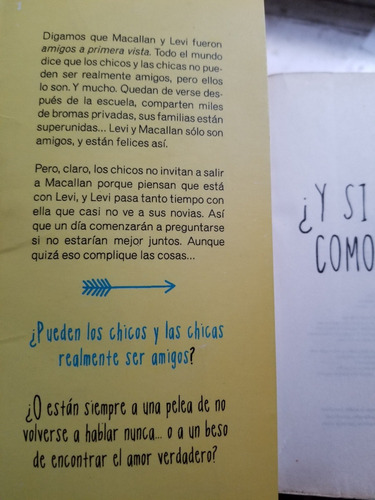 Digamos que Macallan y Levi fueron
amigos a primera vista. Todo el mundo
dice que los chicos y las chicas no pue-
den ser realmente amigos, pero ellos
lo son. Y mucho. Quedan de verse des-
pués de la escuela, comparten miles
de bromas privadas, sus familias están
superunidas... Levi y Macallan sólo son
amigos, y están felices así.
Pero, claro, los chicos no invitan a salir
a Macallan porque piensan que está
con Levi, y Levi pasa tanto tiempo con
ella que casi no ve a sus novias. Así
que un día comenzarán a preguntarse
si no estarían mejor juntos. Aunque
quizá eso complique las cosas...
¿Pueden los chicos y las chicas
realmente ser amigos?
¿O están siempre a una pelea de no
volverse a hablar nunca... o a un beso
de encontrar el amor verdadero?
¿Y SI
COMO